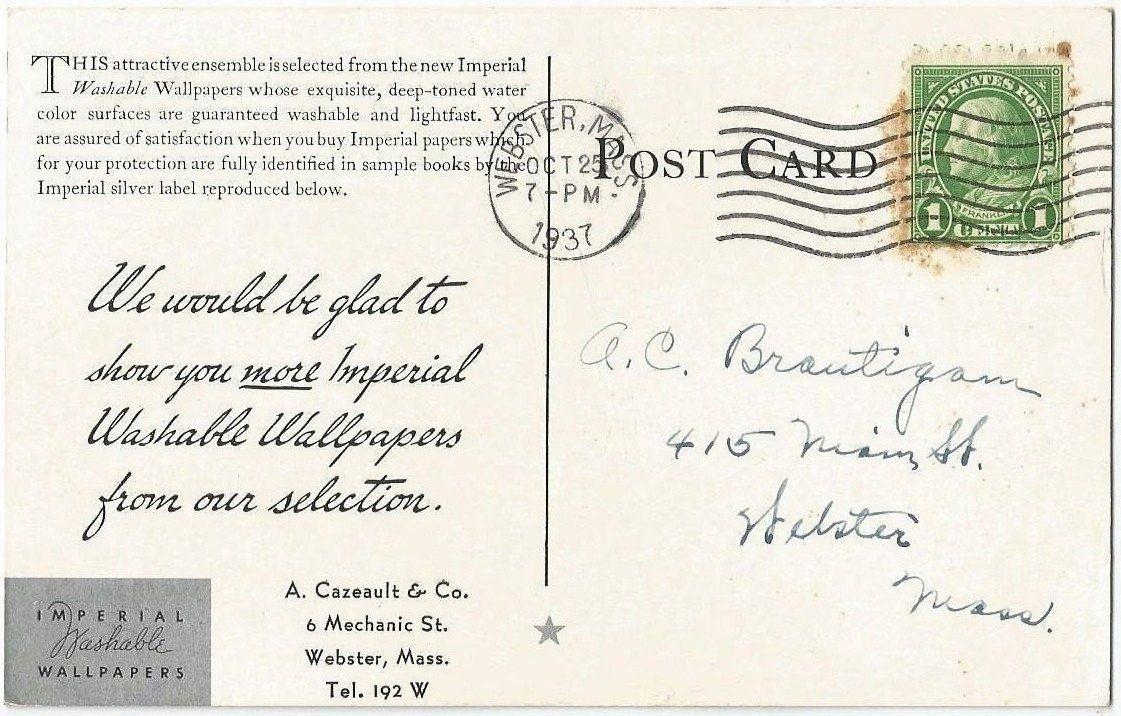 THIS attractive ensemble is selected from the new Imperial
Washable Wallpapers whose exquisite, deep-toned water
color surfaces are guaranteed washable and lightfast. You
are assured of satisfaction when you buy Imperial papers which
for your protection are fully identified in sample books by the
Imperial silver label reproduced below.
We would be glad to
show you more Imperial
Washable Wallpapers
from our selection.
IMPERIAL
Washable
WALLPAPERS
A. Cazeault & Co.
6 Mechanic St.
Webster, Mass.
Tel. 192 W
WEBSTER, MASS.
OCT 25
7-PM
1937
POST CARD
UNITED STATES POSTAGE
FRANKLIN
1 1
A.C. Brautigam
415 Main St.
Webster
Mass.